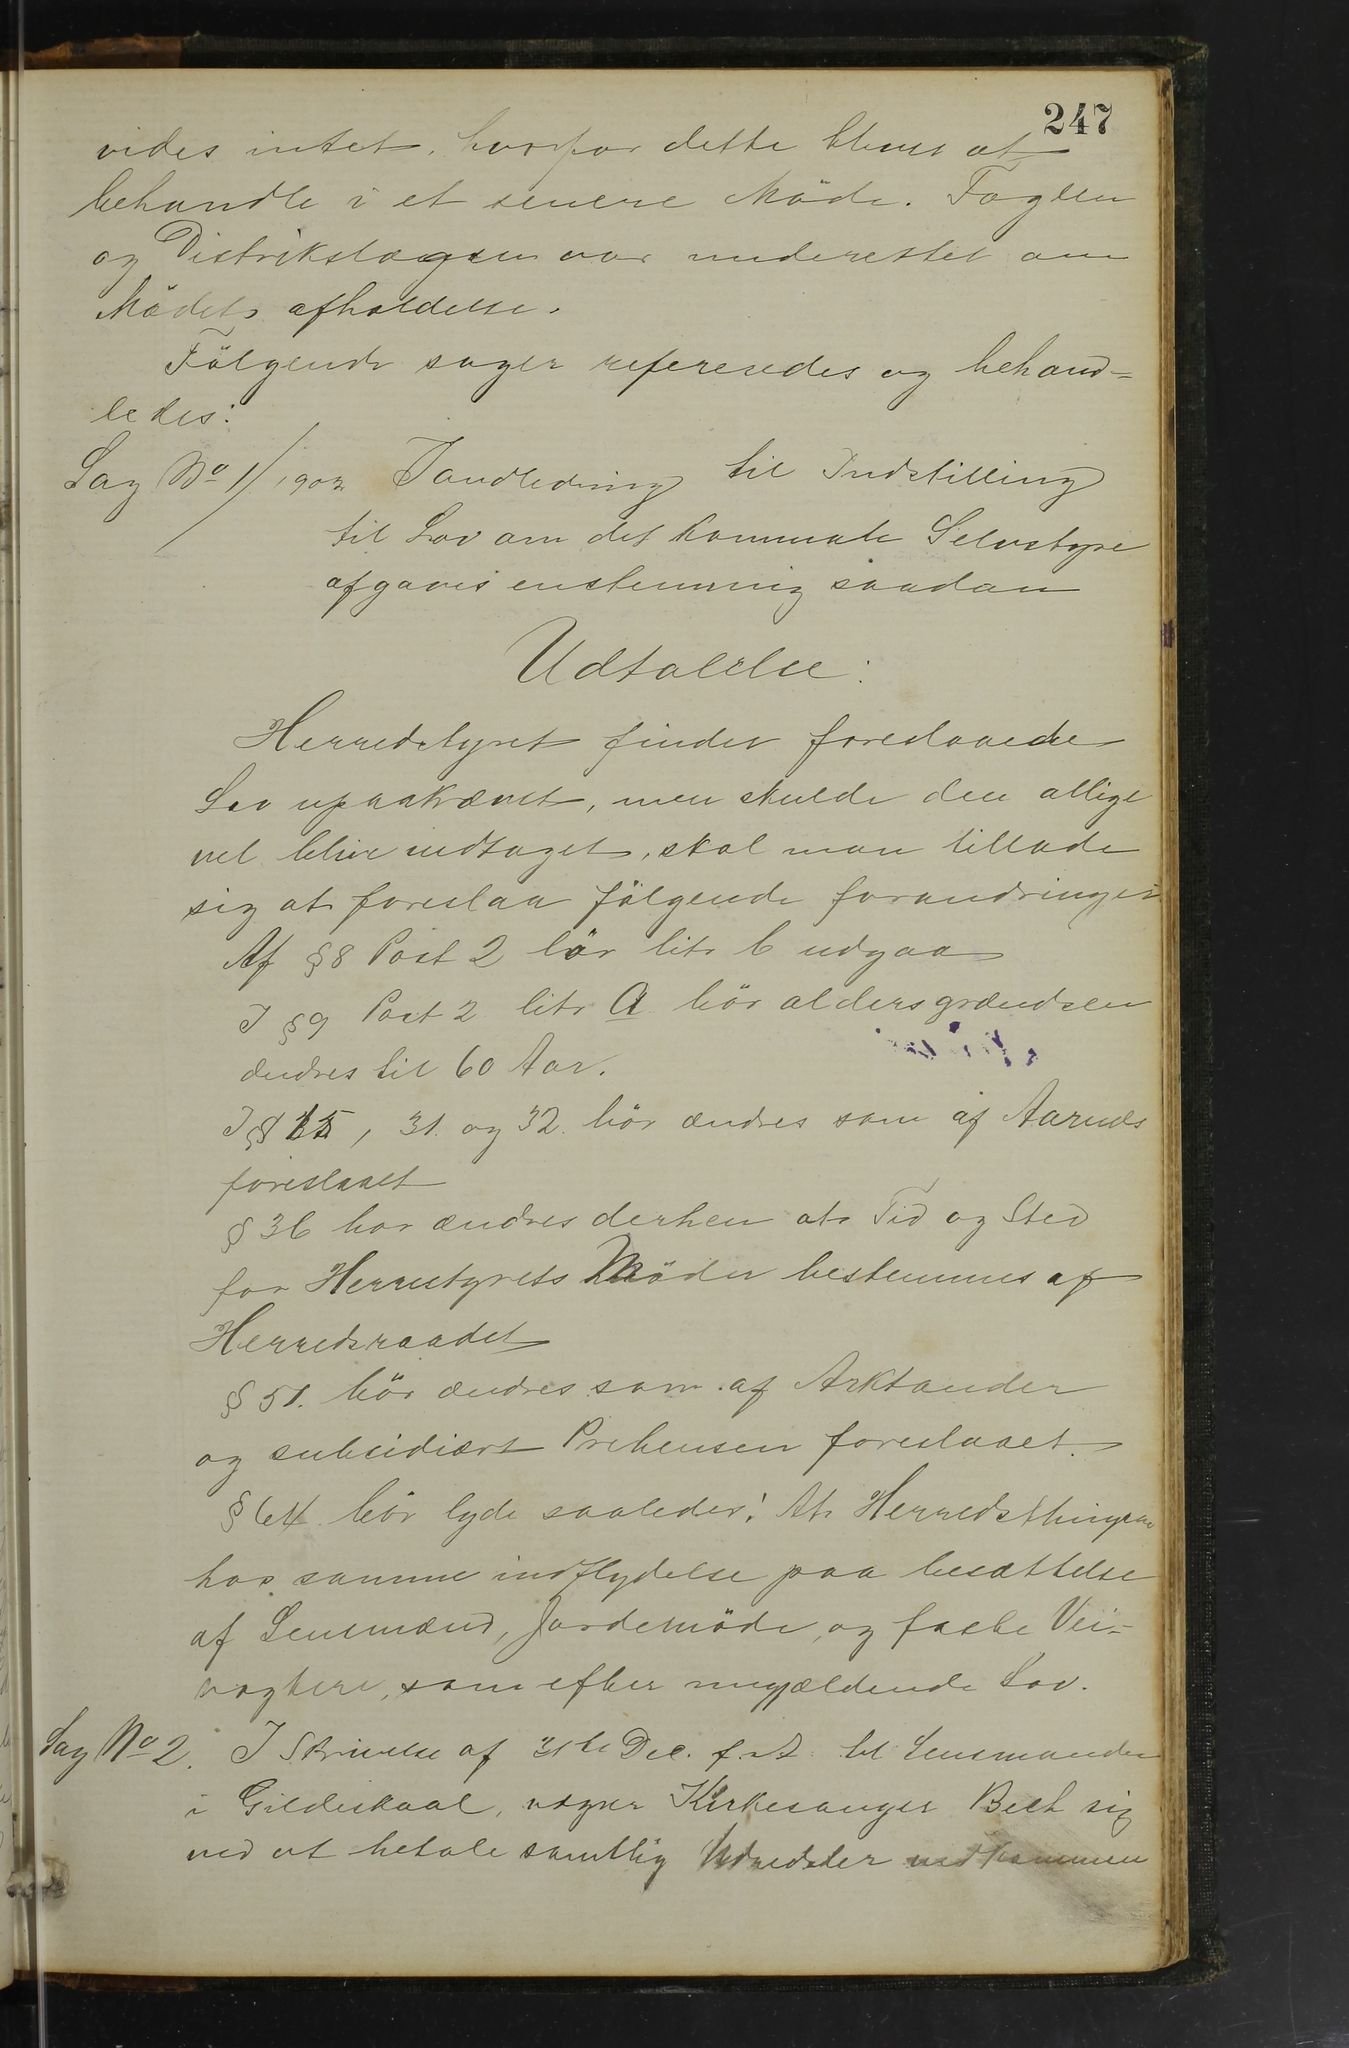 247
vides intet, hvorfor dette blev at
behandle i et senere Møde. Fogden
og Distrikslægen var underettet om
Mödets afholdelse.
Fölgende sager refereredes og behand=
ledes:
Sag No 1/1902 Jandledning til Indstilling
til Lov om det kommunale Selvstyre
afgaves enstemmig saadan
Udtalelse:
Herredstyret finder foreslaaede
Lov upaakrævet, men skulde den allige
vel blive vedtaget, skal man tillade
sig at foreslaa fölgende forandringer
Af § 8 Post 2 bör litr b udgaa
I § 9 Post 2 litr a bör aldersgrændsen
ændres til 60 Aar.
I § 15, 31. og 32. bör ændres som af Aarnes
foreslaaet
§ 36 bør ændres derhen at Tid og Sted
for Herrestyrets Möder bestemmes af
Herredsraadet
§ 51. bör ændres som af Arktander
og subsidiært Prebensen foreslaaet.
§ 64 bör lyde saaledes: At Herredsthingene
has samme indflydelse paa besættelse
af Lensmænd, Jordemödre, og faste Vei=
vogtere, som efter nugjældende Lov.
Sag No 2. I Skrivelse af 31te Dec. f. A. til Lensmanden
i Gildeskaal, vægrer Kirkesanger Beck sig
ved at betale samtlig Udredsler vedkommen